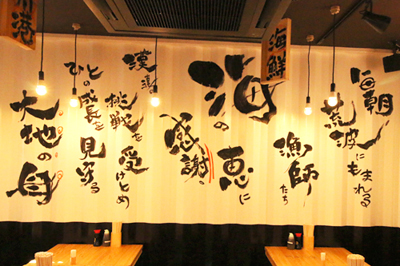 毎朝
荒波にもまれる
漁師たち
海の恵に
感謝、
挑戦を受けとめ
ひとの成長を見送る
大地の母
海鮮
港